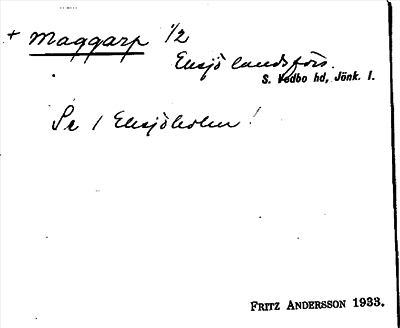 + Maggarp 1/2
Eksjö landsförs.
S. Vedbo hd, Jönk. l.
Se 1 Eksjöholm!
FRITZ ANDERSSON 1933.